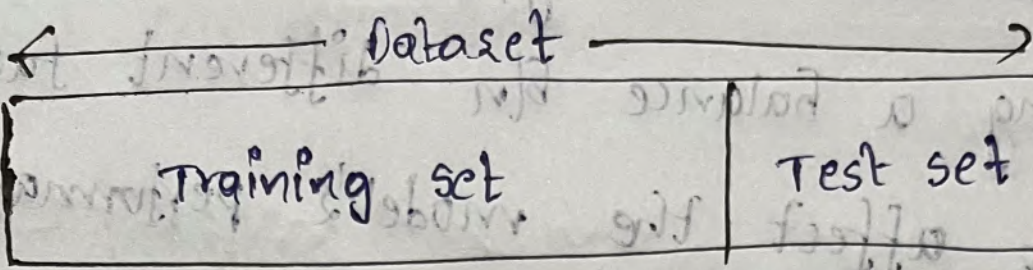 Dataset
Training set Test set